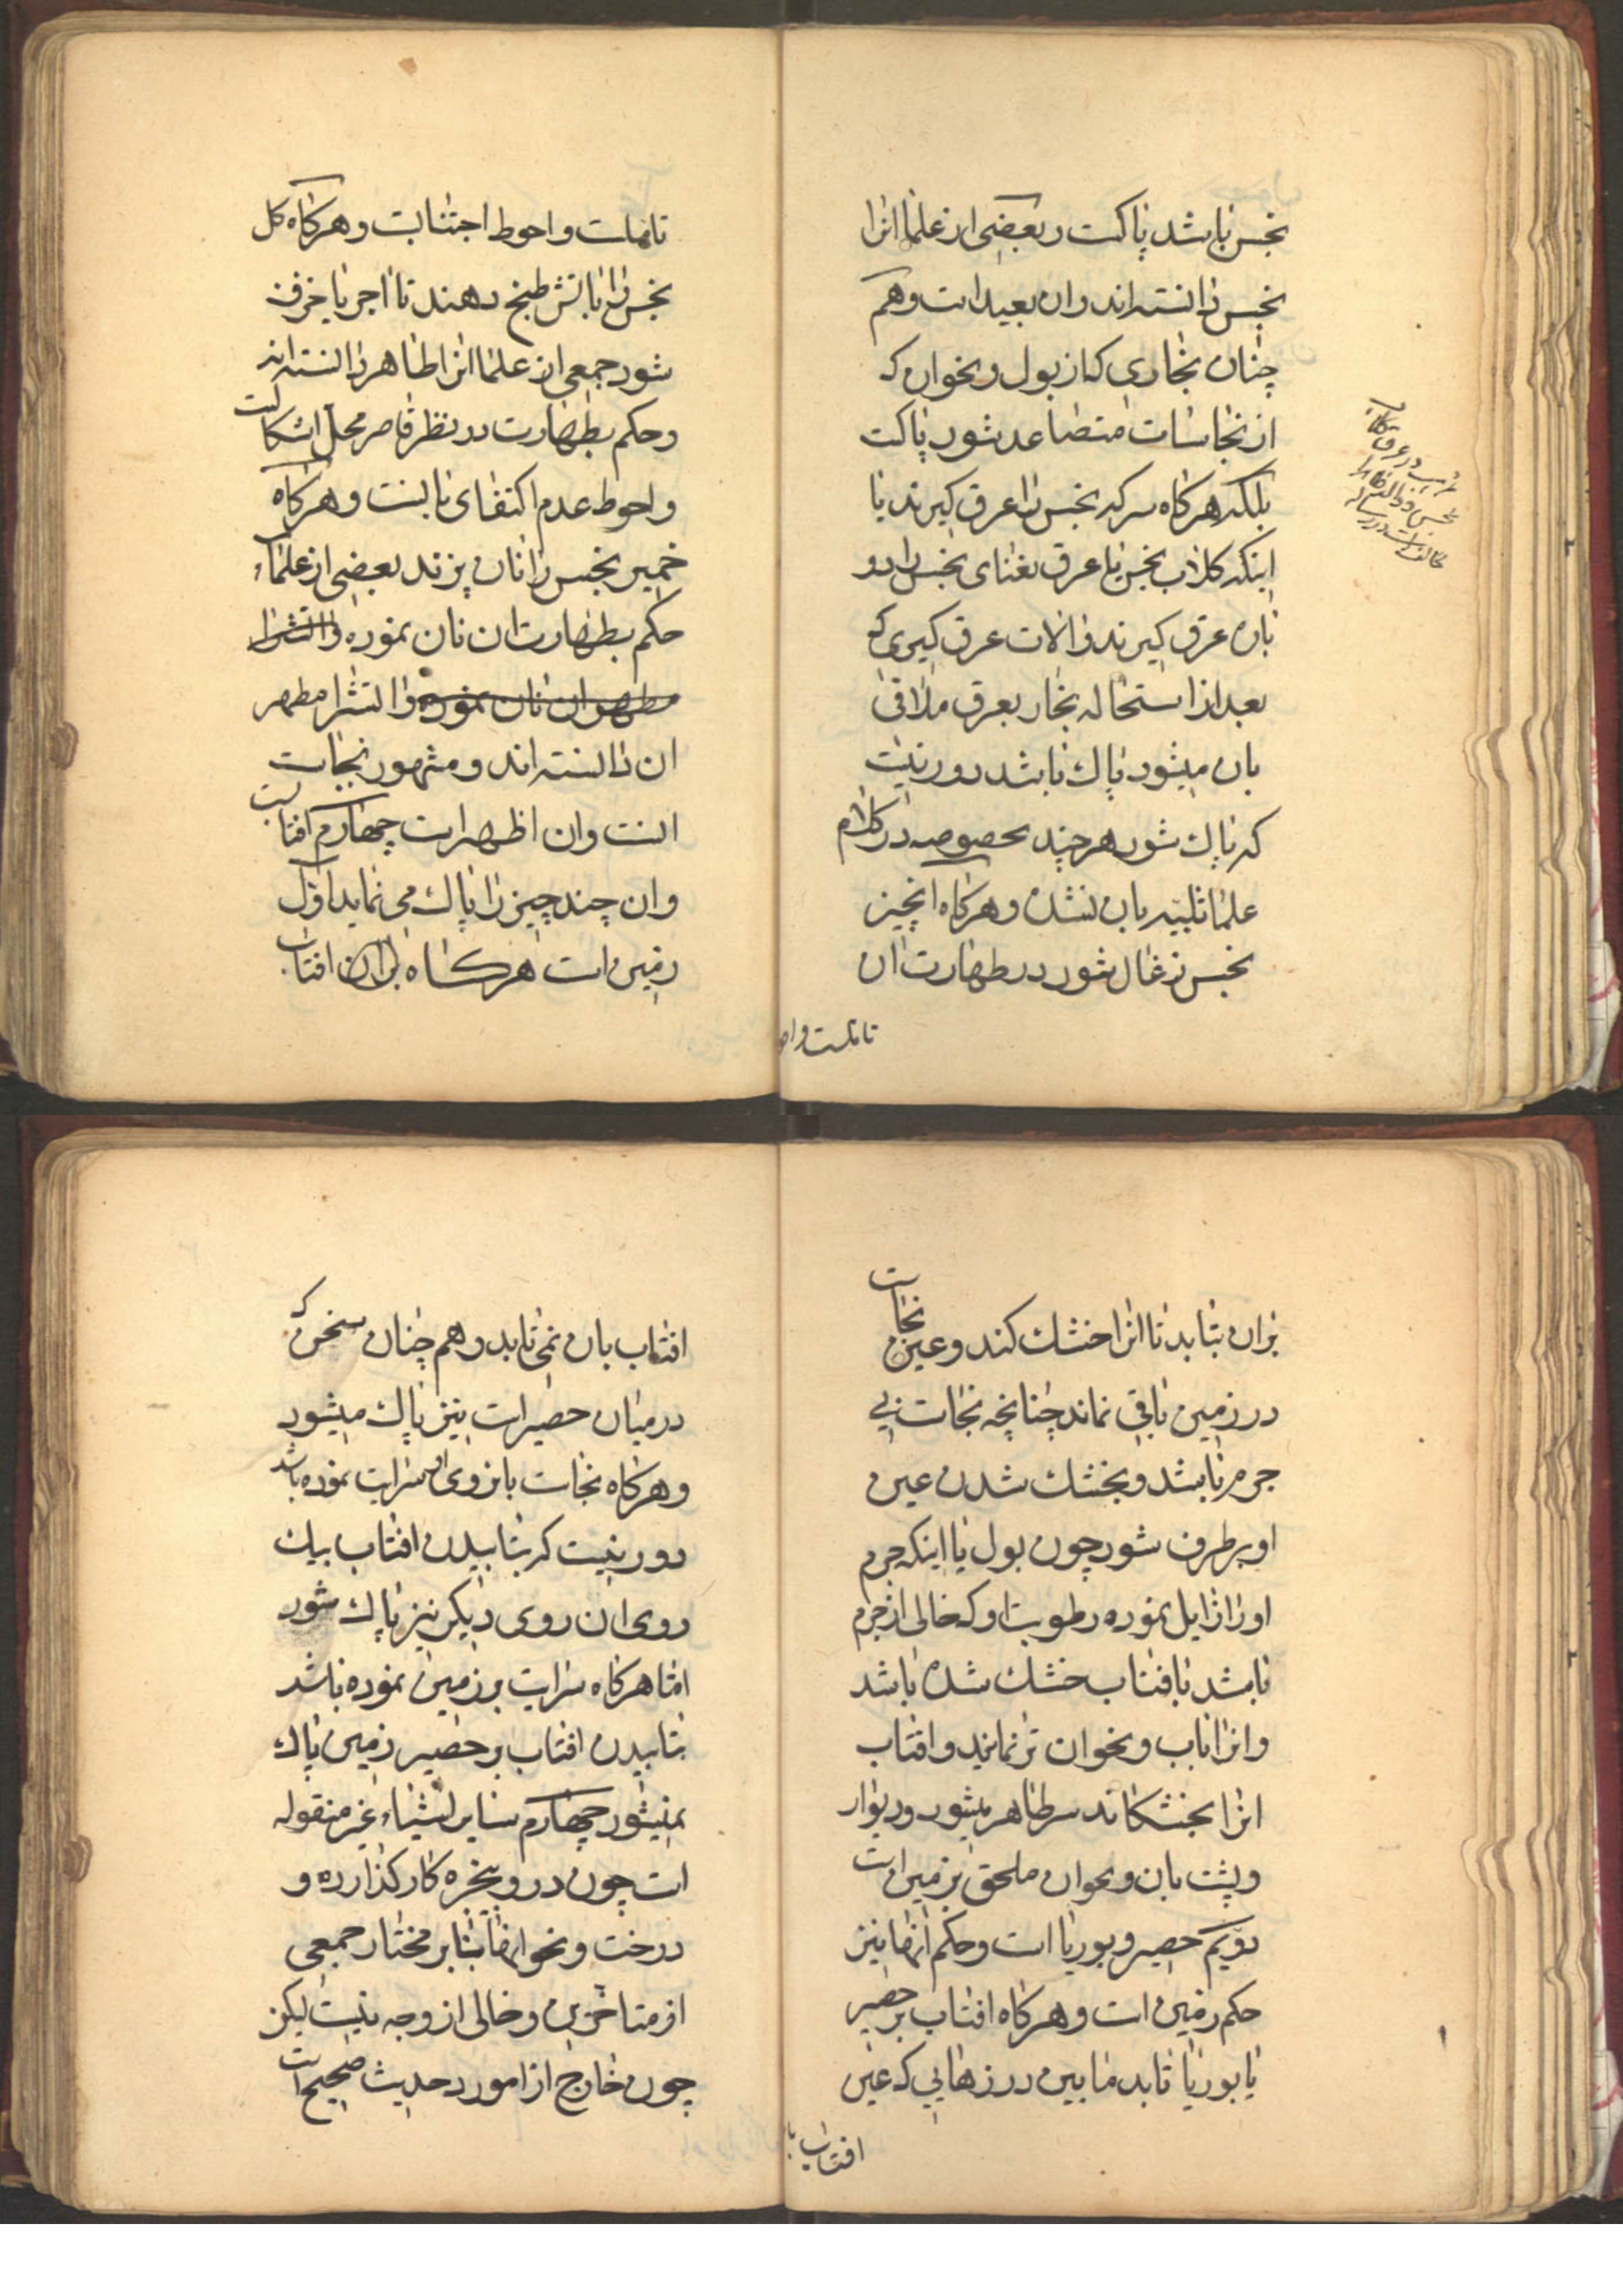 نجس نباشد پاکست و بعضی از علما انرا
نجس دانسته‌اند و ان بعید است و هم
چنان بخاری که از بول و نحو ان که
از نجاسات متصاعد شود پاکست
بلکه هرکاه سرکه نجس را عرق کیرند یا
اینکه کلاب نجس یا عرق نعنای نجس را دو
باره عرق کیرند و الات عرق کیری که
بعد از استحاله بخار بعرق ملاقی
بان میشود پاک باشد دور نیست
که پاک شود هر چند بخصوصه در کلام
علما تنبیه بان نشده و هرکاه انچیز
نجس زغال شود در طهارت ان
تاملست و احو
تاملست و احوط اجتنابست و هرکاه کل
نجس را باتش طبخ دهند تا اجر یا خزف
شود جمعی از علما انرا طاهر دانسته‌اند
و حکم بطهارت در نظر قاصر محل اشکالست
و احوط عدم اکتفای بانست و هرکاه
خمیر نجس را نان پزند بعضی از علماء
حکم بطهارت ان نان نموده و اتش را
مطهر ان نان نموده و اتش را مطهر
ان دانسته‌اند و مشهور نجاست
انست و ان اظهر است چهارم افتابست
و ان چند چیز را پاک می نماید اول
زمین است هرکاه افتاب
بران بتابد تا انرا خشک کند و عین نجاست
در زمین باقی نماند چنانچه نجاست بی
جرم باشد و بخشک شدن عین
او برطرف شود چون بول یا اینکه جرم
او را زایل نموده رطوبت او که خالی از جرم
باشد بافتاب خشک شده باشد
و انرا باب و نحو ان تر نمایند و افتاب
انرا بخشکاند طاهر میشود و دیوار
و پشت بان و نحو ان ملحق بزمین است
دویم حصیر و بوریا است و حکم انها نیز
حکم زمین است و هرکاه افتاب بر حصیر
یا بوریا تابد مابین درزهایی که عین
افتاب با
افتاب بان نمی‌تابد و هم چنان سخن که
در میان حصیر است نیز پاک میشود
و هرکاه نجاست بانروی او سرایت نموده باشد
دور نیست که بتابیدن افتاب بیک
روی ان روی دیکر نیز پاک شود
اما هرکاه سرایت بر زمین نموده باشد
بتابیدن افتاب بر حصیر زمین پاک
نمیشود چهارم سایر اشیاء غیر منقوله
است چون در و پنجره کار کذارده و
درخت و نحو انها بنابر مختار جمعی
از متاخرین و خالی از وجه نیست لیکن
چون خارج از امور د حدیث صحیح است